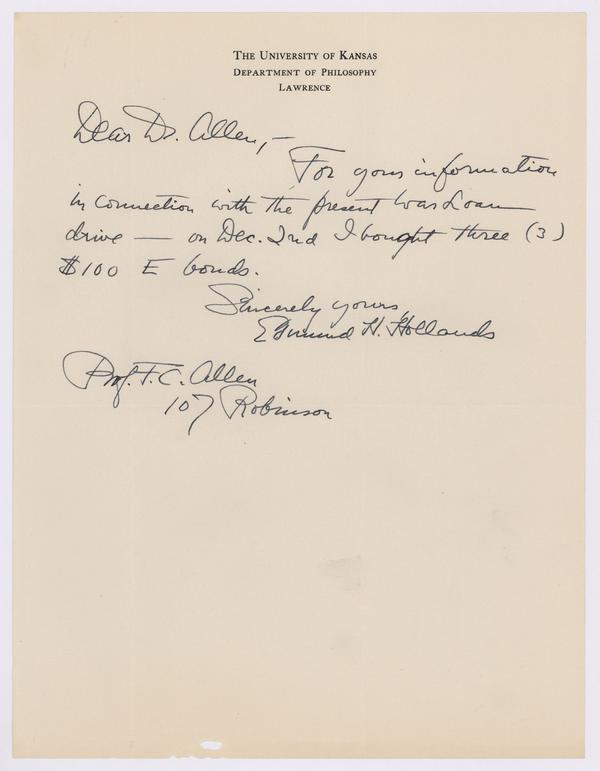 THE UNIVERSITY OF KANSAS
DEPARTMENT OF PHILOSOPHY
LAWRENCE
Dear Dr. Allen, –
For your information
in connection with the present War Loan
drive — on Dec. 2nd I bought three (3)
$100 E bonds.
Sincerely yours,
Edmund H. Hollands
Prof. F. C. Allen
107 Robinson